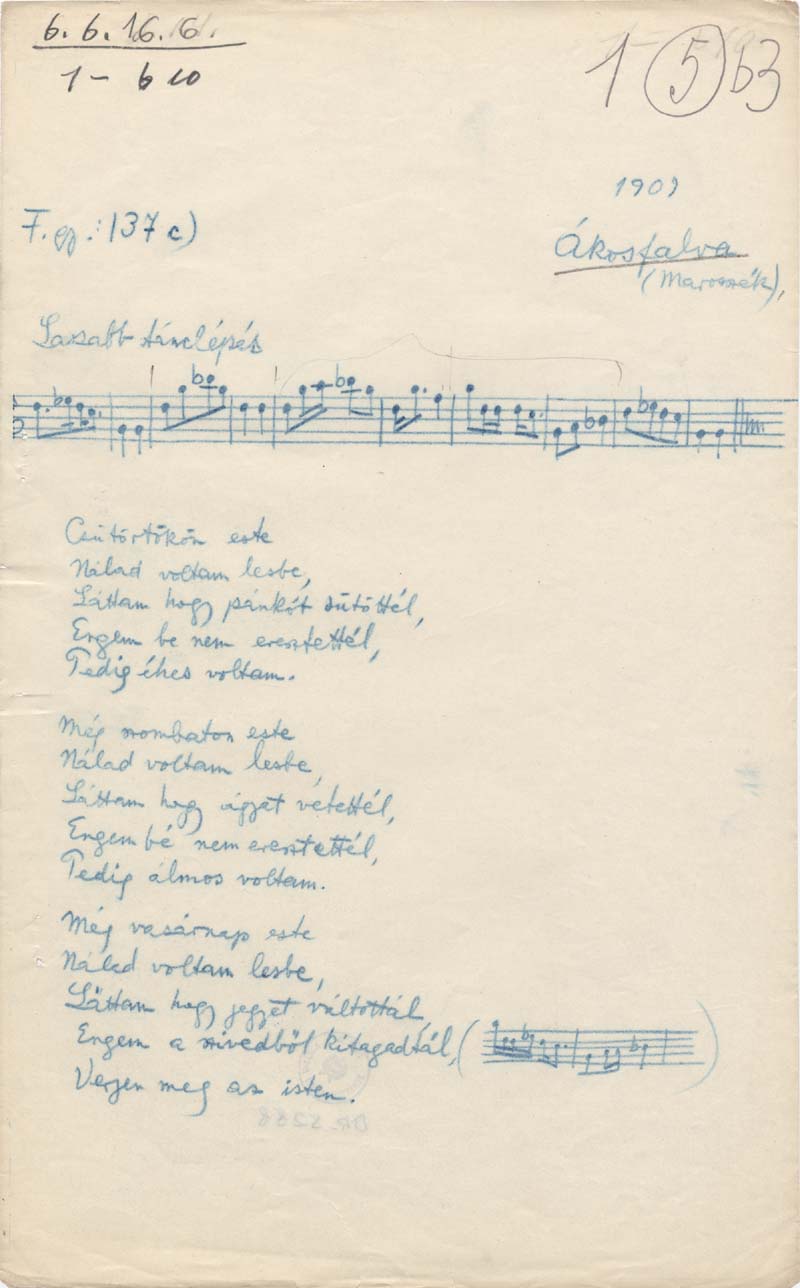 6. 6. 16. 6.
1 – b 10
1 5 b3
1909
F. gy.: 137 c)
Ákosfalva
(Marosszék),
Lassabb tánclépés
Csütörtökön este
Nálad voltam lesbe,
Láttam hogy pánkót sütöttél,
Engem be nem eresztettél,
Pedig éhes voltam.
Még szombaton este
Nálad voltam lesbe,
Láttam hogy ágyat vetettél,
Engem bé nem eresztettél,
Pedig álmos voltam.
Még vasárnap este
Nálad voltam lesbe,
Láttam hogy jegyet váltottál,
Engem a szivedből kitagadtál,
Verjen meg az isten.